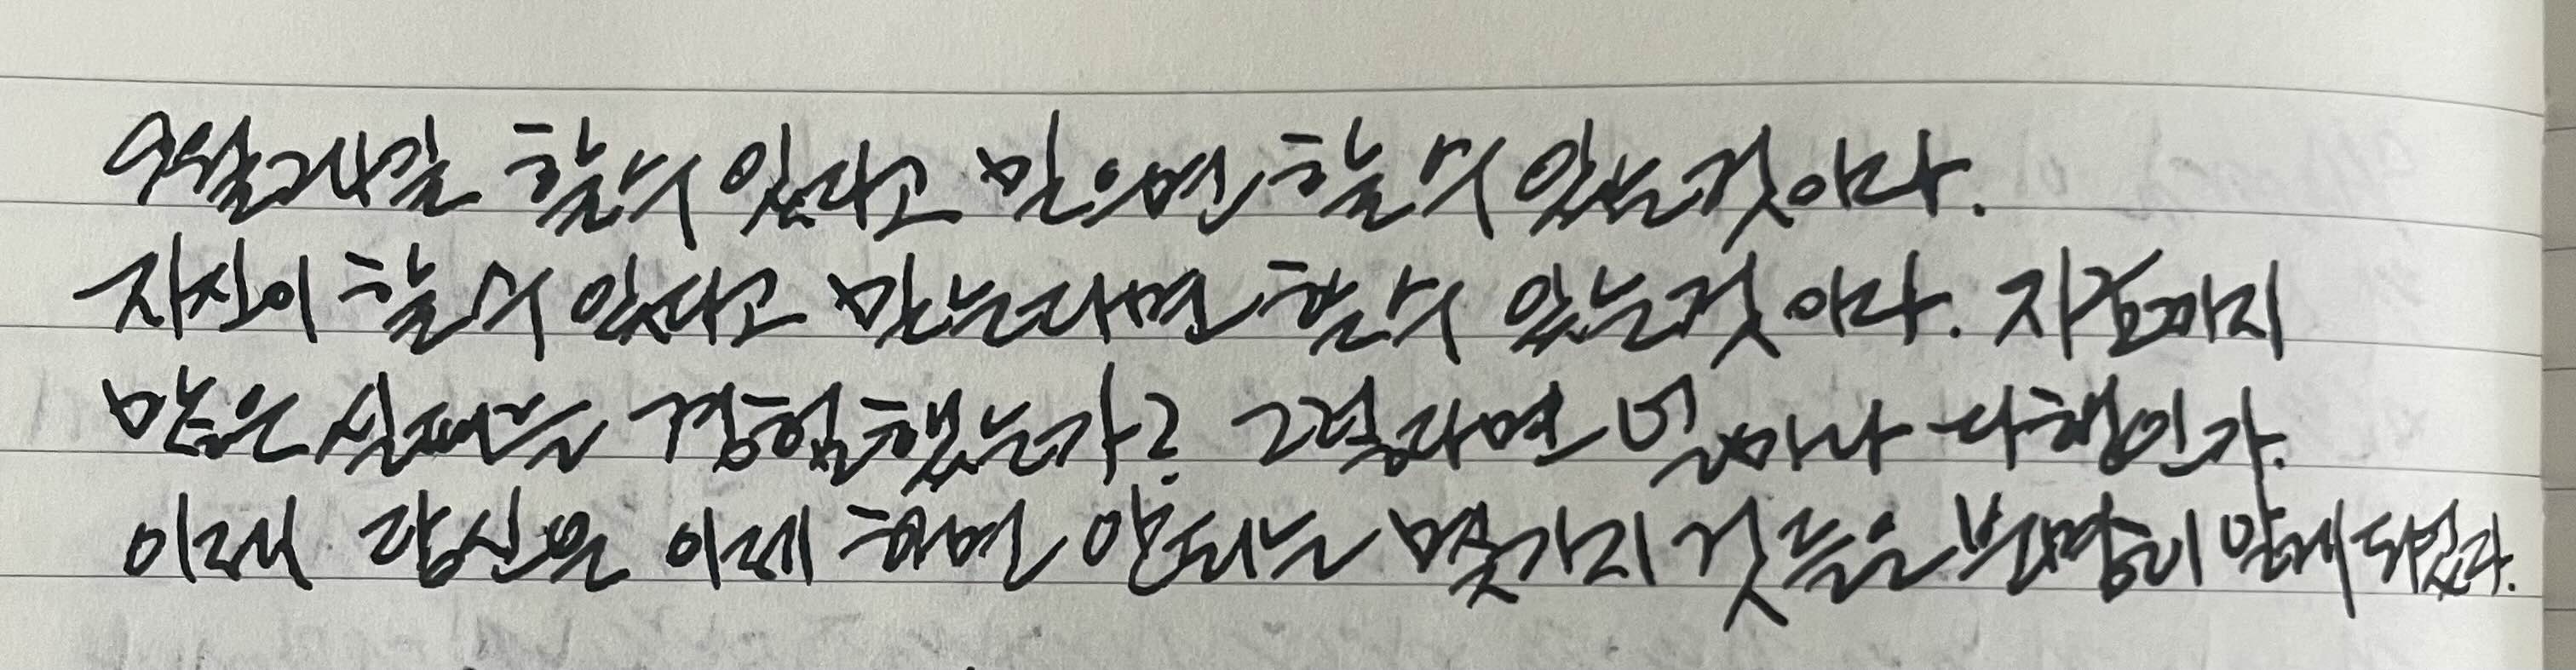 할 수 있다고 믿으면 할 수 있는것이다.
자신이 할 수 있다고 믿는다면 할 수 있는것이다. 지금까지
많은 실패를 경험했는가? 그렇다면 얼마나 다행인가.
이래서 당신은 이제 하면 안되는 몇가지 것들을 분명히 알게 되었다.